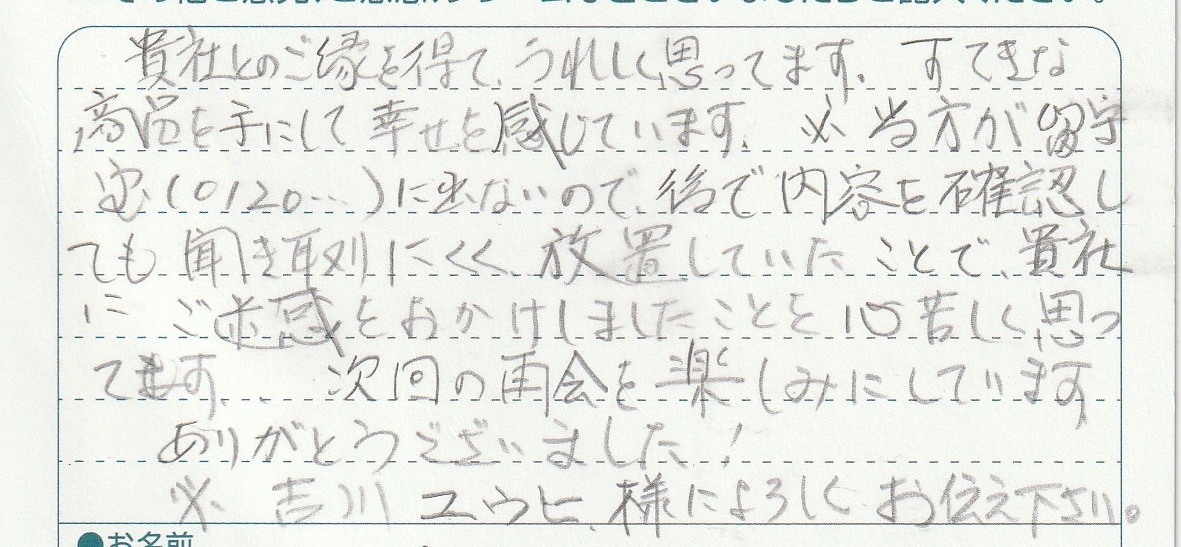 貴社とのご縁を得て、うれしく思ってます。すてきな
商品を手にして幸せを感じています。※当方が留守
宅(0120…)に出ないので、後で内容を確認し
ても聞き取りにくく、放置していたことで、貴社
にご迷惑をおかけしましたことを心苦しく思っ
てます。次回の再会を楽しみにしています
ありがとうございました!
※吉川ユウヒ様によろしくお伝え下さい。
●お名前